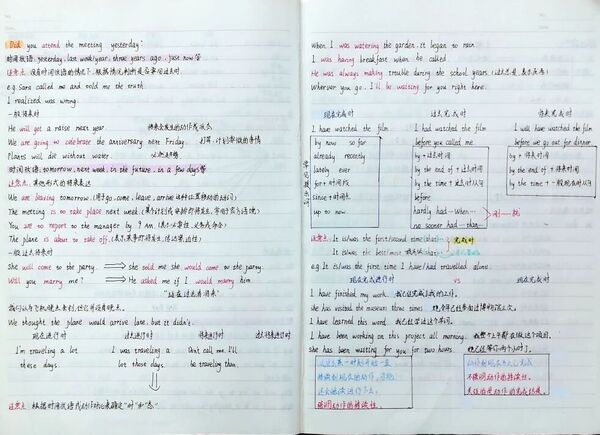 Did you attend the meeting yesterday?
时间状语: yesterday, last week/year, three years ago, just now 等
注意点: 没有时间状语的情况下, 根据情况判断是否要用过去时
e.g. Sara called me and told me the truth.
I realized was wrong.
一般将来时
He will get a raise next year.
将来会发生的动作或状态
We are going to celebrate the anniversary next Friday.
打算, 计划要做的事情
Plants will die without water.
时间状语: tomorrow, next week, in the future, in a few days 等
注意点: 其他形式的将来表达
We are leaving tomorrow.
The meeting is to take place next week.
You are to report to the manager by 9 AM.
The plane is about to take off.
一般过去将来时
She will come to the party.
She told me she would come to the party.
Will you marry me?
He asked me if I would marry him
"站在过去看将来"
我们以为飞机晚点来到, 但它并没有晚点。
We thought the plane would arrive late, but it didn't.
现在进行时 过去进行时 将来进行时 过去将来进行时
I'm traveling a lot these days.
I was traveling a lot those days.
Don't call me. I'll be traveling then.
注意点: 根据时间状语或动作对比来确定"时"和"态"
When I was watering the garden, it began to rain.
I was having breakfast when he called.
He was always making trouble during the school years.
Wherever you go, I'll be waiting for you right here.
现在完成时 过去完成时 将来完成时
I have watched the film
by now so far
already recently
lately ever
for + 时间段
since + 时间点
up to now
I had watched the film
before you called me
by + 过去时间
by the end of + 过去时间
by the time + 过去时从句
before
hardly had … when …
no sooner had … than …
I will have watched the film
before we go out for dinner
by + 将来时间
by the end of + 将来时间
by the time + 一般现在时从句
注意点: It is/was the first/second time (that) … 完成时
It is/was the best/most
e.g. It is/was the first time I have/had travelled alone.
现在完成进行时 vs 现在完成时
I have finished my work. 我已经完成了我的工作。
She has visited the museum three times.
I have learned this word. 我已经学过这个单词。
I have been working on this project all morning. 我整个上午都在做这个项目。
She has been waiting for you for two hours. 她已经等你两个小时了。
强调动作的持续性。
不强调动作的持续性。